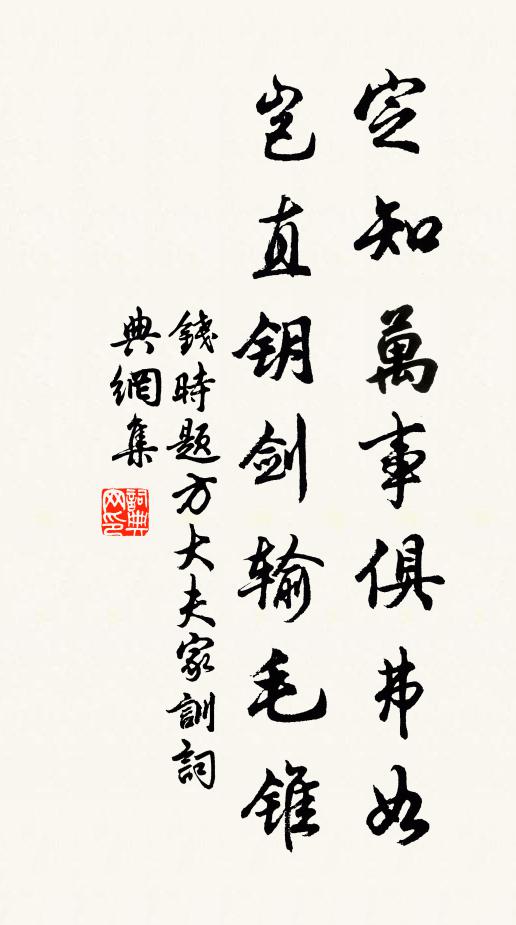 定知萬事俱弗如
岂直钥剑输毛锥
錢時題方大夫家訓詞
典網集
詞典
网印